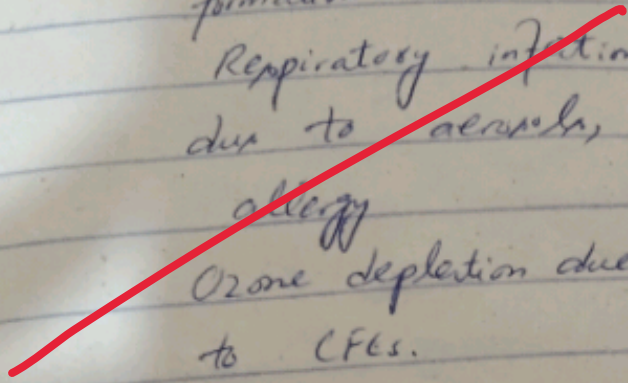 Respiratory infection
due to aerosols,
allergy
Ozone depletion due
to CFCs.